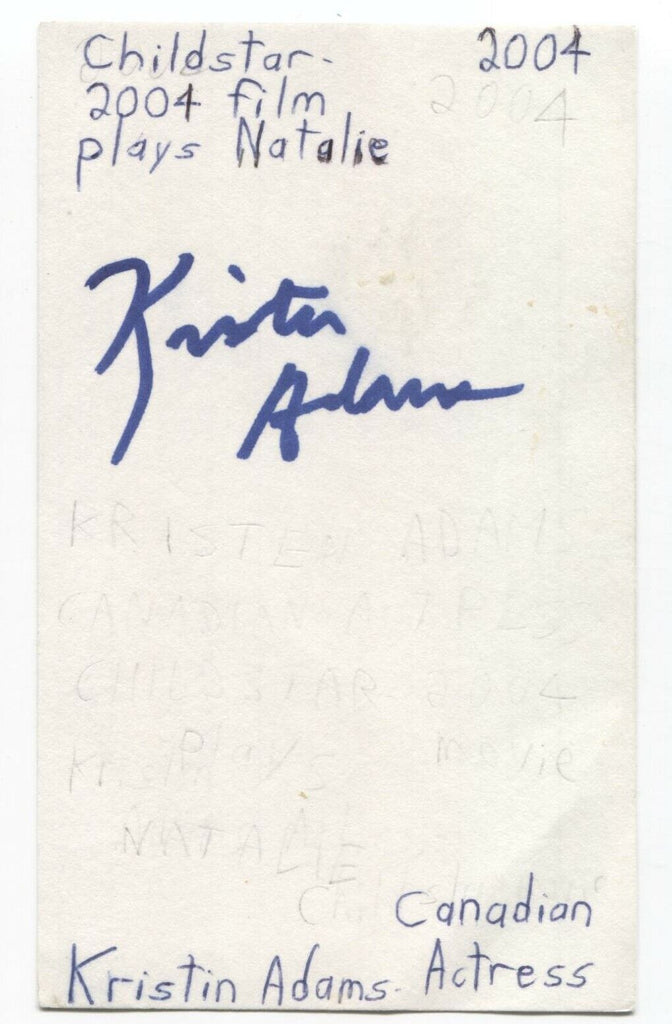 Childstar- 2004
2004 film
2004
plays Natalie
Kristin
Adams
KRISTEN ADAMS
CANADIAN ACTRESS
CHILDSTAR- 2004
plays movie
NATALIE
Canadian
Kristin Adams- Actress